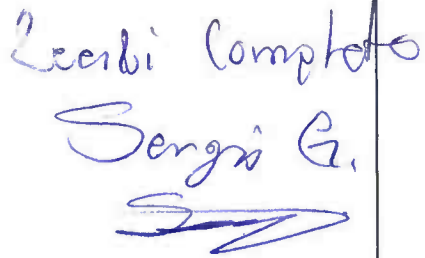 Recibi Completo
Sergio G.